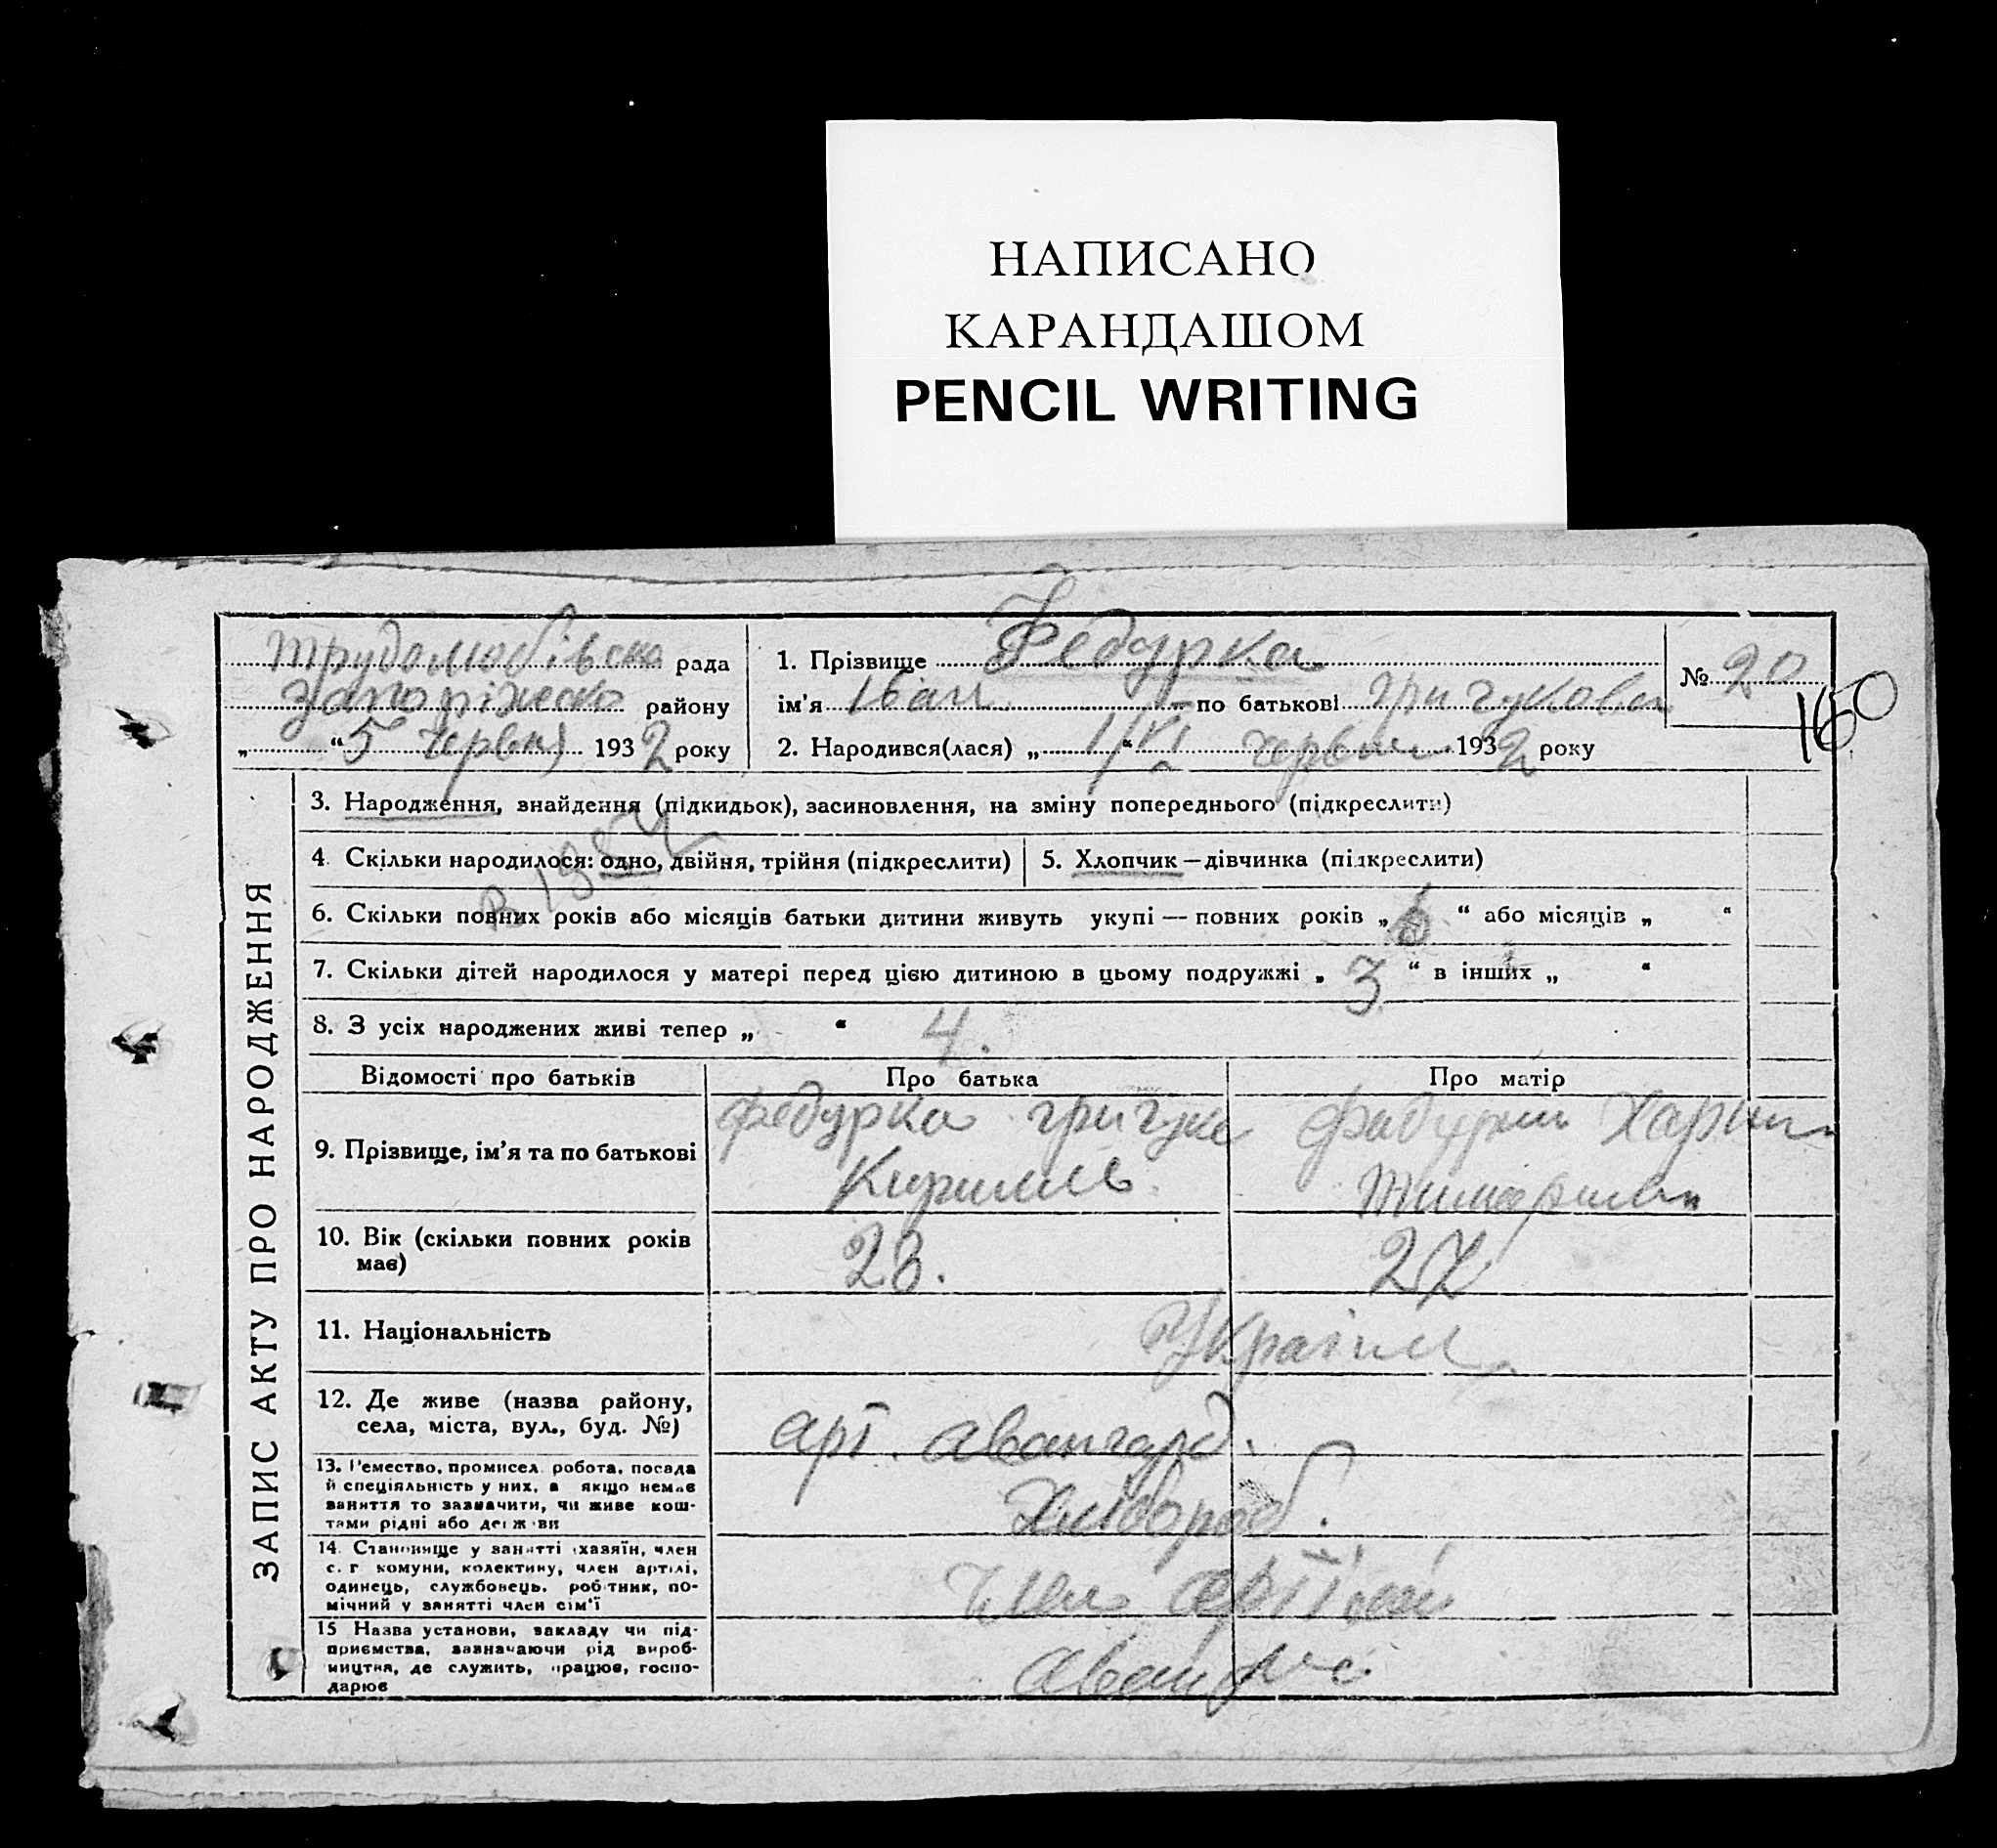 НАПИСАНО
КАРАНДАШОМ
PENCIL WRITING
Трудолюбівська рада
Запоріжсько району
„ “ 5 червня 1932 року
1. Прізвище Федурка
ім'я Іван по батькові Григукова
2. Народився(лася) „ 1/VI “ червня 1932 року
№ 20
160
ЗАПИС АКТУ ПРО НАРОДЖЕННЯ
3. Народження, знайдення (підкидьок), засиновлення, на зміну попереднього (підкреслити)
4. Скільки народилося: одно, двійня, трійня (підкреслити)
5. Хлопчик — дівчинка (підкреслити)
6. Скільки повних років або місяців батьки дитини живуть укупі — повних років „ “ або місяців „ “
7. Скільки дітей народилося у матері перед цією дитиною в цьому подружжі „ 3 “ в інших „ “
8. З усіх народжених живі тепер „ “ 4.
Відомості про батьків
Про батька
Про матір
9. Прізвище, ім'я та по батькові
Федурка Григука
10. Вік (скільки повних років
має)
23.
27
11. Національність
12. Де живе (назва району,
села, міста, вул., буд. №)
арт. авангард.
13. Ремество, промисел робота, посада
й спеціяльність у них, а якщо немає
заняття то зазначити, чи живе кош-
тами рідні або держави
Хлібороб.
14. Становище у занятті (хазяїн, член
с. г комуни, колективу, член артілі,
одинець, службовець, робітник, по-
мічний у занятті член сім'ї
член
15 Назва установи, закладу чи під-
приємства, зазначаючи рід вироб-
ництва, де служить, працює, госпо-
дарює